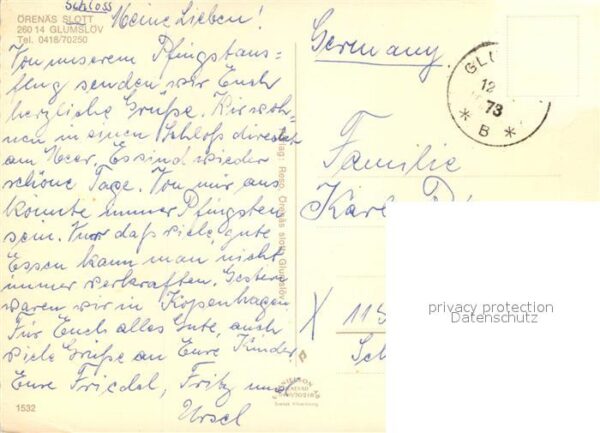 Schloss
ÖRENÄS SLOTT
260 14 GLUMSLÖV
Tel. 0418/70250
Meine Lieben!
Von unserem Pfingstaus=
flug senden wir Euch
herzliche Grüße. Wir woh=
nen in einem Schloß direckt
am Meer. Es sind wieder
schöne Tage. Von mir aus
könnte immer Pfingsten
sein. Nur daß viele, gute
Essen kann man nicht
immer verkraften. Gestern
waren wir in Kopenhagen
Für Euch alles Gute, auch
viele Grüße an Eure Kinder
Eure Friedel, Fritz und
Ursel
1532
Reso, Örenäs slott, Glumslöv
Germany
GLU
12
73
* B *
Familie
Karl
X 115
Sch
privacy protection
Datenschutz